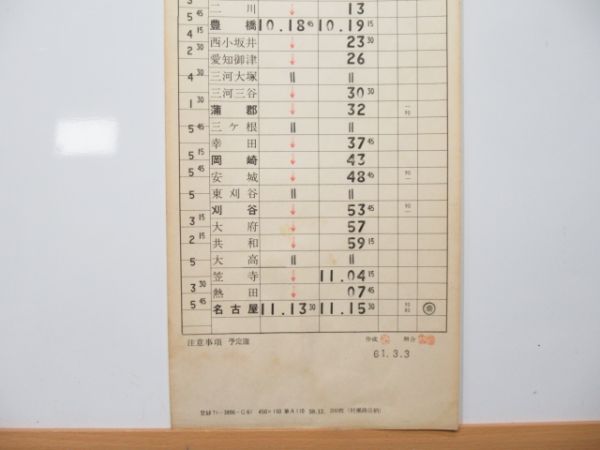 5 45 二川 ↓ 13
4 15 豊橋 10.18 45 10.19 15
西小坂井 ↓ 23 30
愛知御津 ↓ 26
4 30 三河大塚 || ||
三河三谷 ↓ 30 30
1 30 蒲郡 ↓ 32
5 45 三ケ根 || ||
幸田 ↓ 37 45
5 15 岡崎 ↓ 43
5 45 安城 ↓ 48 45
5 東刈谷 || ||
刈谷 ↓ 53 45
3 15 大府 ↓ 57
2 15 共和 ↓ 59 15
5 大高 || ||
笠寺 ↓ 11.04 15
3 30 熱田 ↓ 07 45
5 45 名古屋 11.13 30 11.15 30
注意事項 予定臨 作成 照合
61.3.3